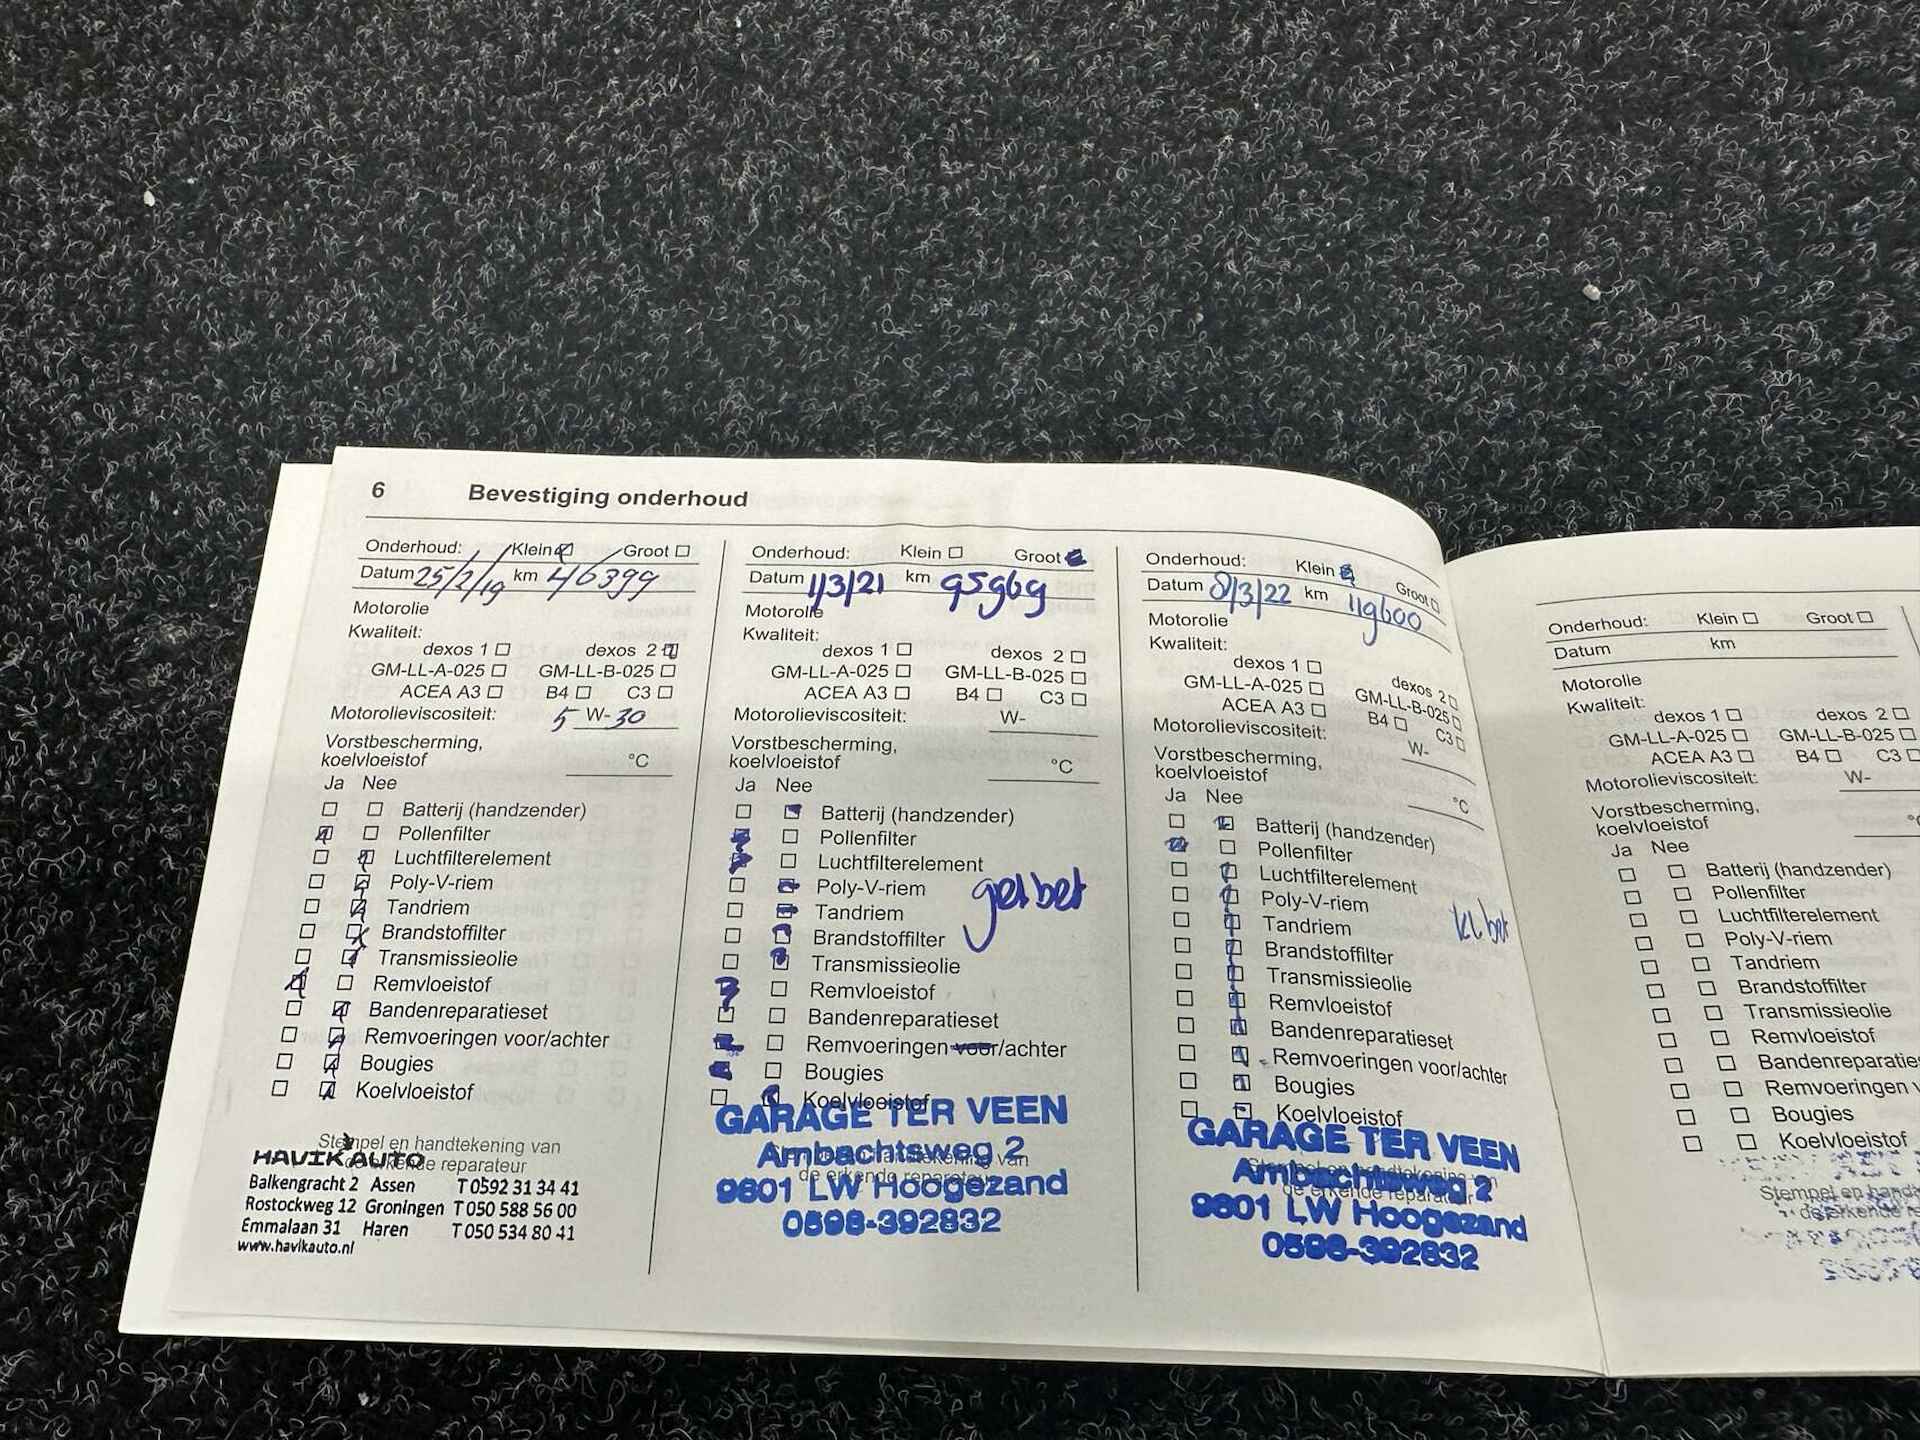 6 Bevestiging onderhoud
Onderhoud: Klein Groot
Datum 25/2/19 km 46399
Motorolie
Kwaliteit:
dexos 1 dexos 2
GM-LL-A-025 GM-LL-B-025
ACEA A3 B4 C3
Motorolieviscositeit: 5 W-30
Vorstbescherming,
koelvloeistof °C
Ja Nee
Batterij (handzender)
Pollenfilter
Luchtfilterelement
Poly-V-riem
Tandriem
Brandstoffilter
Transmissieolie
Remvloeistof
Bandenreparatieset
Remvoeringen voor/achter
Bougies
Koelvloeistof
Stempel en handtekening van
de erkende reparateur
HAVIK AUTO
Balkengracht 2 Assen T 0592 31 34 41
Rostockweg 12 Groningen T 050 588 56 00
Emmalaan 31 Haren T 050 534 80 41
www.havikauto.nl
Onderhoud: Klein Groot
Datum 1/3/21 km 95969
Motorolie
Kwaliteit:
dexos 1 dexos 2
GM-LL-A-025 GM-LL-B-025
ACEA A3 B4 C3
Motorolieviscositeit: W-
Vorstbescherming,
koelvloeistof °C
Ja Nee
Batterij (handzender)
Pollenfilter
Luchtfilterelement
Poly-V-riem
Tandriem
Brandstoffilter
Transmissieolie
Remvloeistof
Bandenreparatieset
Remvoeringen voor/achter
Bougies
Koelvloeistof
GARAGE TER VEEN
Ambachtsweg 2
de erkende reparateur
9601 LW Hoogezand
0598-392832
Onderhoud: Klein Groot
Datum 8/3/22 km 119600
Motorolie
Kwaliteit:
dexos 1 dexos 2
GM-LL-A-025 GM-LL-B-025
ACEA A3 B4 C3
Motorolieviscositeit: W-
Vorstbescherming,
koelvloeistof °C
Ja Nee
Batterij (handzender)
Pollenfilter
Luchtfilterelement
Poly-V-riem
Tandriem
Brandstoffilter
Transmissieolie
Remvloeistof
Bandenreparatieset
Remvoeringen voor/achter
Bougies
Koelvloeistof
GARAGE TER VEEN
Ambachtsweg 2
9601 LW Hoogezand
0598-392832
Onderhoud: Klein Groot
Datum km
Motorolie
Kwaliteit:
dexos 1 dexos 2
GM-LL-A-025 GM-LL-B-025
ACEA A3 B4 C3
Motorolieviscositeit: W-
Vorstbescherming,
koelvloeistof
Ja Nee
Batterij (handzender)
Pollenfilter
Luchtfilterelement
Poly-V-riem
Tandriem
Brandstoffilter
Transmissieolie
Remvloeistof
Bandenreparaties
Remvoeringen v
Bougies
Koelvloeistof
Stempel en hand
de erkende re